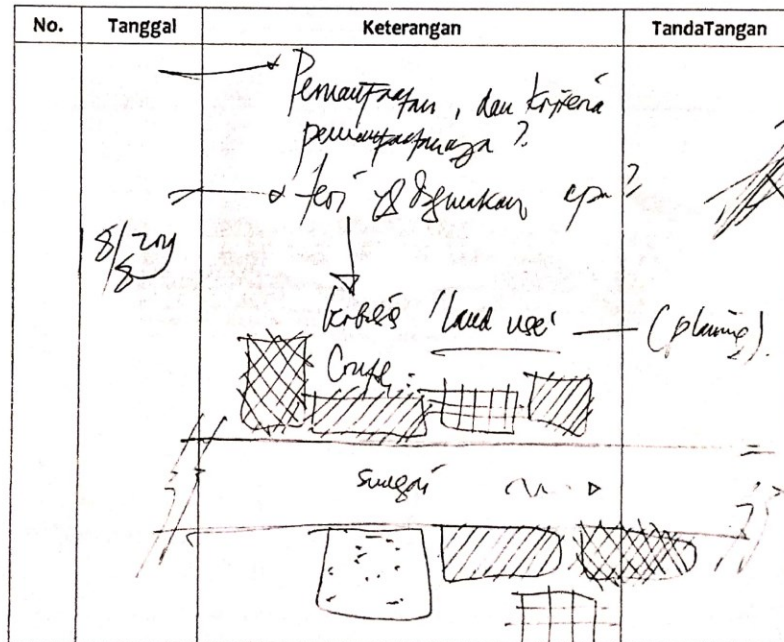 No. Tanggal Keterangan TandaTangan
Pemanfaatan, dan kriteria
pemanfaatannya?
teori yg digunakan apa?
8/8
'land use' (planing).
Sungai